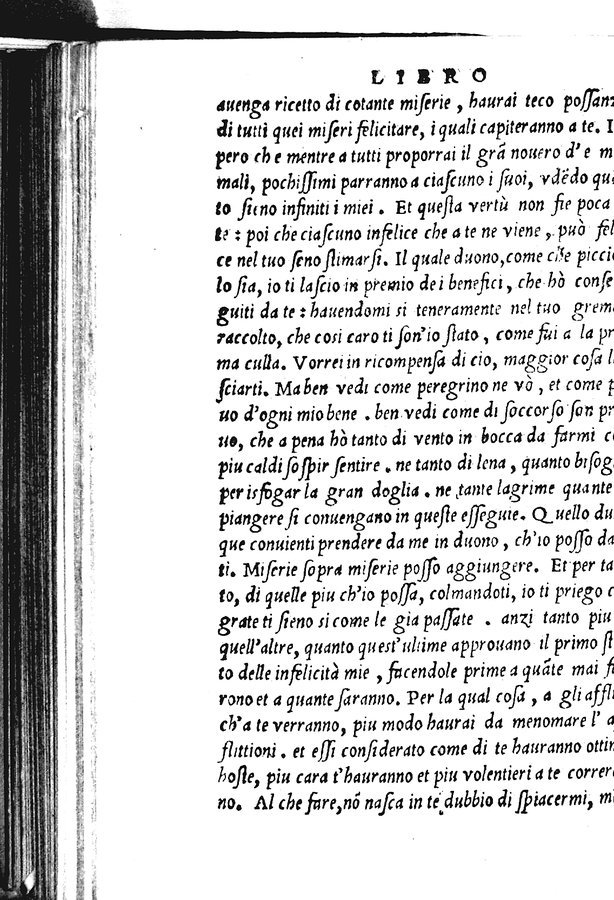 LIBRO
auenga ricetto di cotante miserie, haurai teco possan
di tutti quei miseri felicitare, i quali capiteranno a te. I
pero che mentre a tutti proporrai il grā nouero d'e m
mali, pochissimi parranno a ciascuno i suoi, vdēdo qua
to sieno infiniti i miei. Et questa vertù non fie poca
te: poi che ciascuno infelice che a te ne viene, può fel
ce nel tuo seno stimarsi. Il quale duono, come che piccio
lo sia, io ti lascio in premio de i benefici, che hò conse
guiti da te: hauendomi si teneramente nel tuo grem
raccolto, che cosi caro ti son'io stato, come fui a la pr
ma culla. Vorrei in ricompensa di cio, maggior cosa l
sciarti. Ma ben vedi come peregrino ne vò, et come p
uo d'ogni mio bene. ben vedi come di soccorso son pr
uo, che a pena hò tanto di vento in bocca da farmi c
piu caldi sospir sentire. ne tanto di lena, quanto bisog
per isfogar la gran doglia. ne tante lagrime quante
piangere si conuengano in queste esseguie. Quello du
que conuienti prendere da me in duono, ch'io posso da
ti. Miserie sopra miserie posso aggiungere. Et per ta
to, di quelle piu ch'io possa, colmandoti, io ti priego c
grate ti sieno si come le gia passate. anzi tanto piu
quell'altre, quanto quest'ultime approuano il primo st
to delle infelicità mie, facendole prime a quāte mai f
rono et a quante saranno. Per la qual cosa, a gli affli
ch'a te verranno, piu modo haurai da menomare l'a
flittioni. et essi considerato come di te hauranno ottim
hoste, piu cara t'hauranno et piu volentieri a te correr
no. Al che fare, nō nasca in te dubbio di spiacermi, m